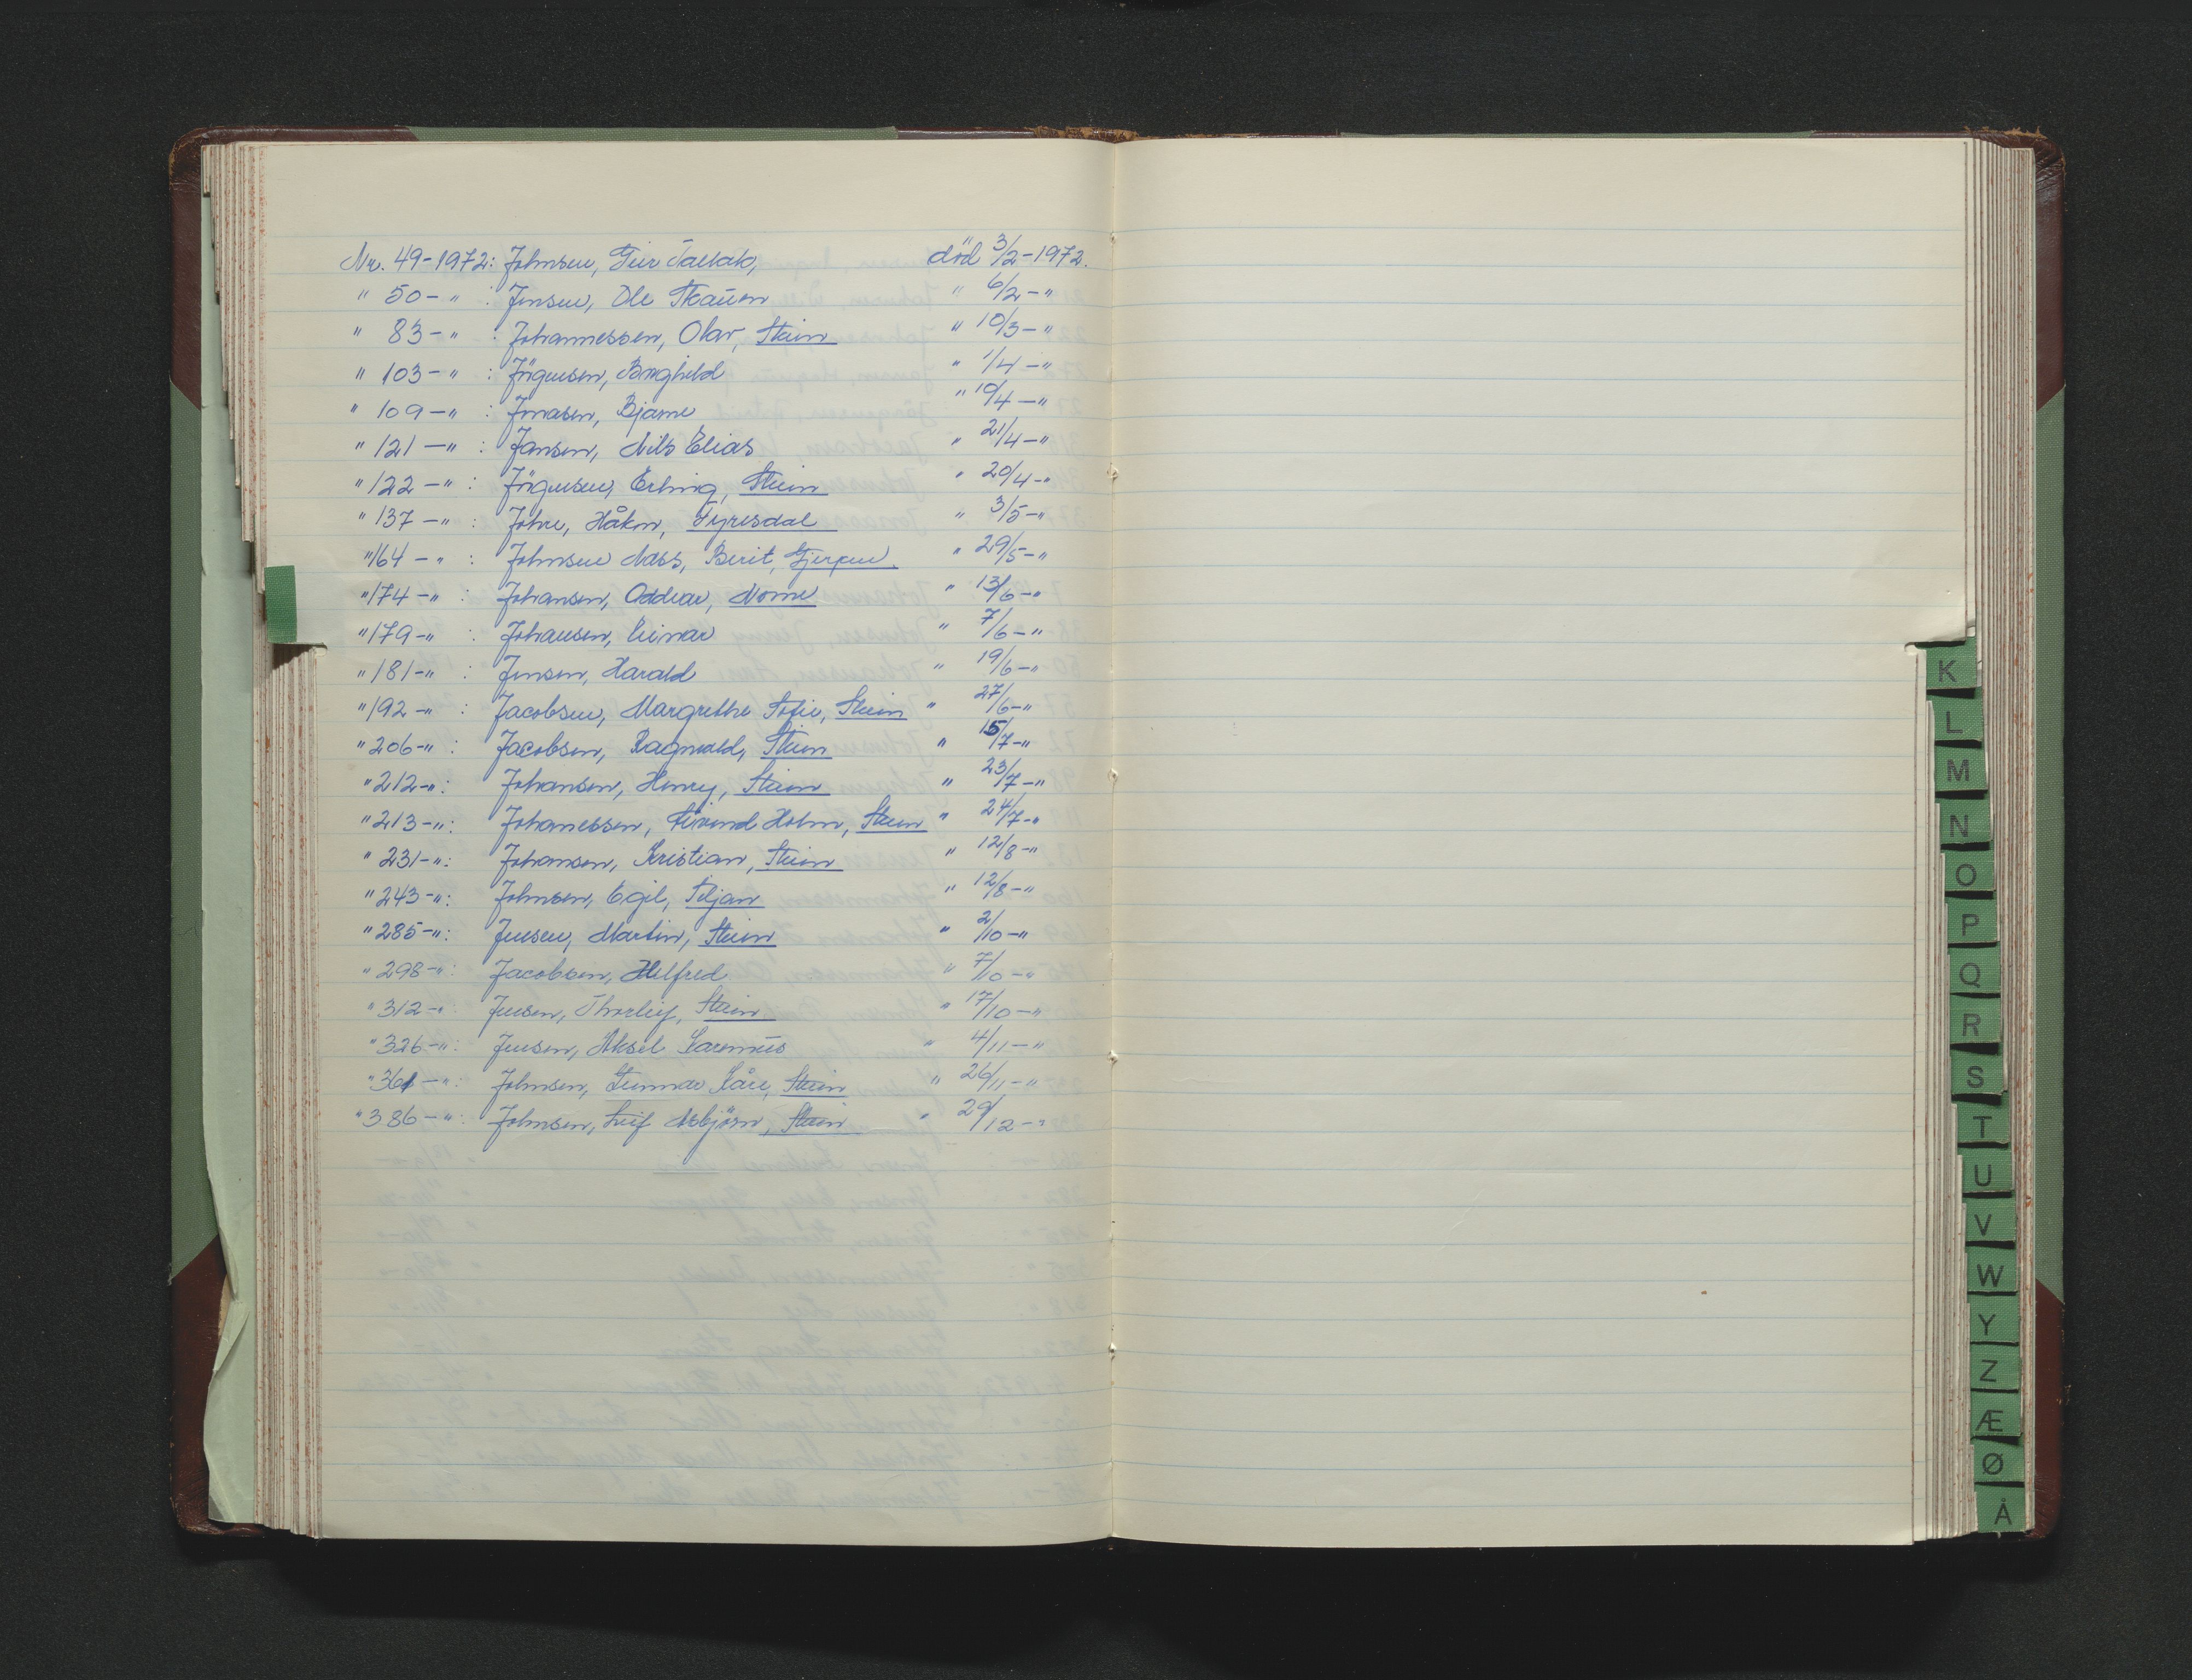 Nr. 49-1972: Johnsen, Geir Tallak, död 3/2-1972.
" 50- " : Jensen, Ole Skauen " 6/2-"
" 83- " : Johannessen, Olav, Skien " 10/3-"
" 103- " : Jörgensen, Borghild " 1/4-"
" 109- " : Jonasen, Bjarne " 10/4-"
" 121-" : Jansen, Nils Elias " 21/4-"
" 122-" : Jörgensen, Erling, Skien " 20/4-"
" 137-" : Johre, Håkon, Fyresdal " 3/5-"
" 164-" : Johnsen Næss, Berit, Gjerpen. " 29/5-"
" 174-" : Johansen, Oddvar, Nome " 13/6-"
" 179-" : Johansen, Einar " 7/6-"
" 181-" : Jensen, Harald " 19/6-"
" 192-" : Jacobsen, Margrethe Sofie, Skien " 27/6-"
" 206-" : Jacobsen, Ragnvald, Skien " 15/7-"
" 212-": Johansen, Henry, Skien " 23/7-"
" 213-": Johanessen, Eivind Holm, Skien " 24/7-"
" 231-": Johansen, Kristian, Skien " 12/8-"
" 243-": Johnsen, Egil, Siljan " 12/8-"
" 285-": Jensen, Martin, Skien " 2/10-"
" 298-": Jacobsen, Helfred " 7/10-"
" 312-": Jensen, Thorleif, Skien " 17/10-"
" 326-": Jensen, Aksel Rasmus " 4/11-"
" 361-": Johnsen, Gunnar Kåre, Skien " 26/11-"
" 386-": Johnsen, Leif Asbjörn, Skien " 29/12-"
K
L
M
N
O
P
Q
R
S
T
U
V
W
Y
Z
Æ
Ø
Å